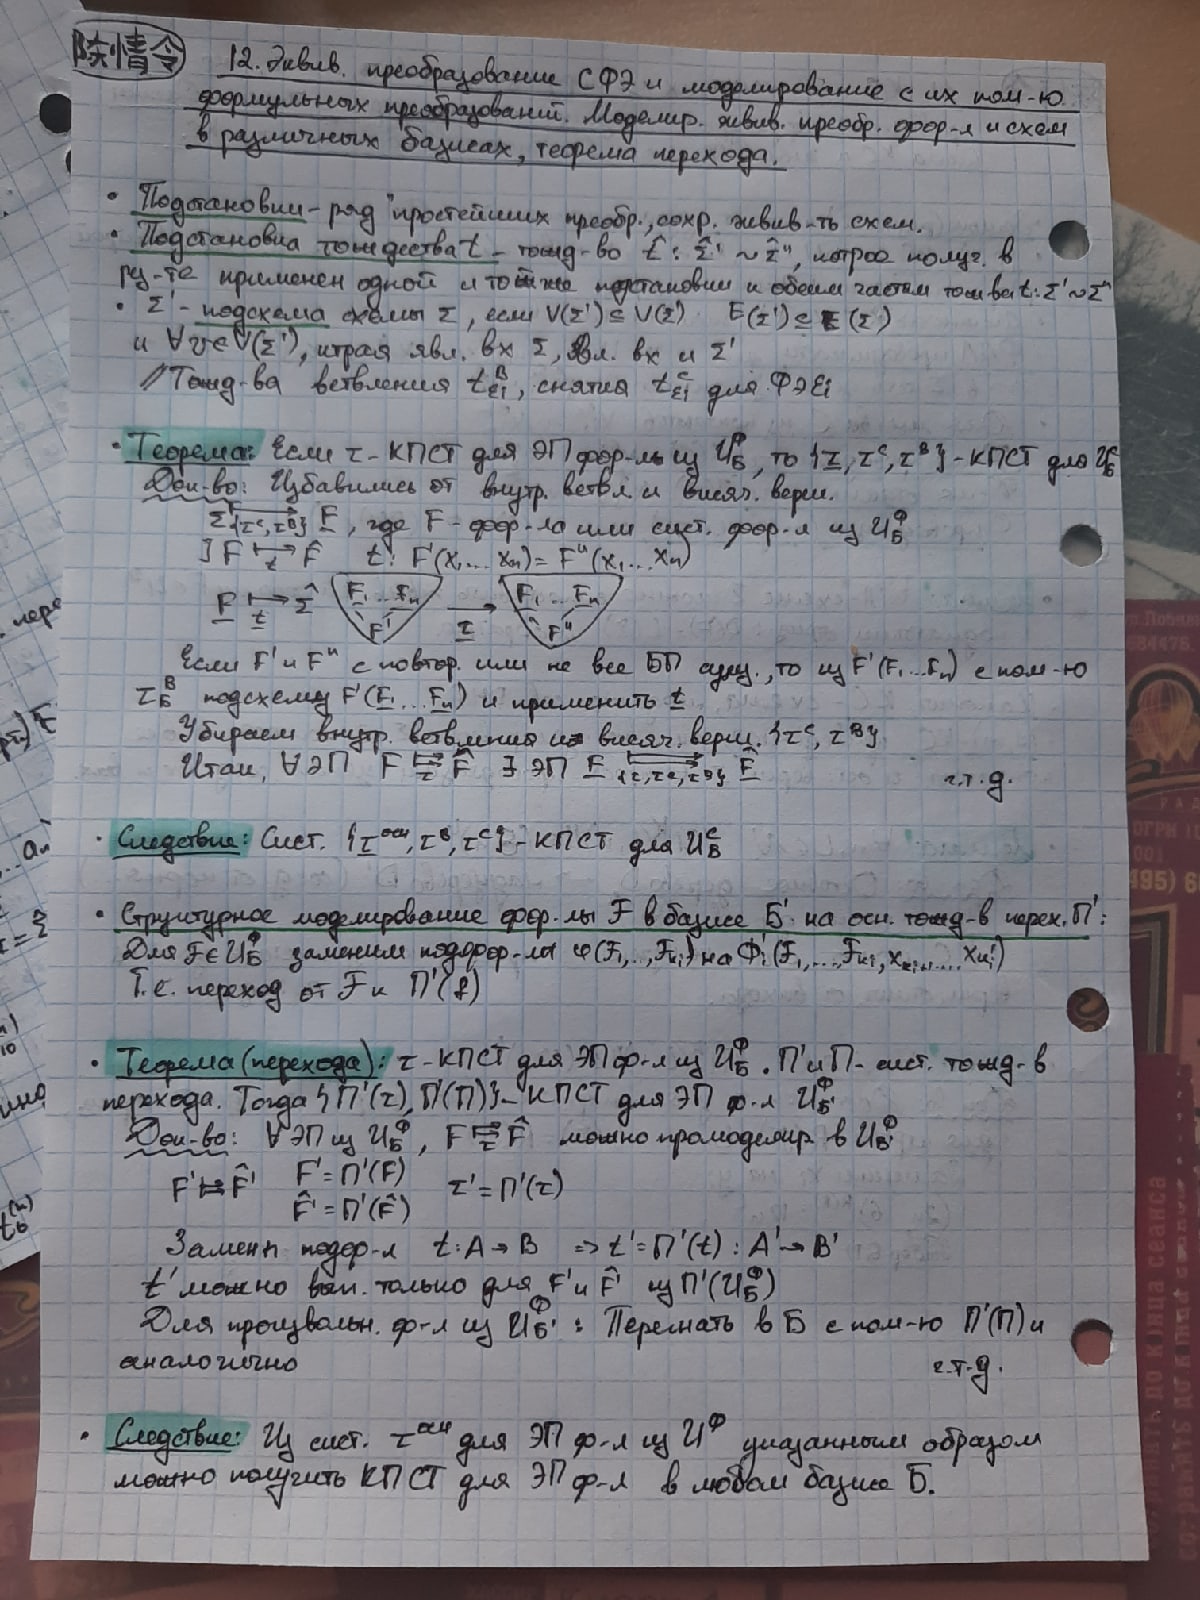 陈情令
12. Эквив. преобразование СФЭ и моделирование с их пом-ю
формульных преобразований. Моделир. эквив. преобр. фор-л и схем
в различных базисах, теорема перехода.
• Подстановки - ряд простейших преобр., сохр. эквив-ть схем.
• Подстановка тождества t - тожд-во t̂ : Σ̂' ~ Σ̂'', котрое получ. в
рез-те применен одной и той же подстановки к обеим частям тож ва t: Σ' ~ Σ''
• Σ' - подсхема схемы Σ, если V(Σ') ⊆ V(Σ) E(Σ') ⊆ E(Σ)
и ∀ v ∈ V(Σ'), ктрая явл. вх Σ, явл. вх и Σ'
// Тожд-ва ветвления t^В_εi, снятия t^С_εi для ФЭ εi
• Теорема: Если τ - КПСТ для ЭП фор-лы из U^Ф_Б, то {τ, τ^С, τ^В} - КПСТ для U^С_Б
Док-во: Избавились от внутр. ветвл. и висяч. верш.
Σ ⇒{τ^С, τ^В} F, где F - фор-ла или сист. фор-л из U^Ф_Б
] F ↦t F̂ t: F'(x₁,... xₙ) = F''(x₁... xₙ)
F ↦t Σ̂ F₁...Fₙ F' →τ F₁...Fₙ F''
Если F' и F'' с повтор. или не все БП сущ., то из F'(F₁...Fₙ) с пом-ю
τ^В_Б подсхему F'(F₁...Fₙ) и применить t
Убираем внутр. ветвления и висяч. верш. {τ^С, τ^В}
Итак, ∀ ЭП F ⇒τ F̂ ∃ ЭП F ⇒{τ, τ^С, τ^В} F̂ ч.т.д.
• Следствие: Сист. {τ^осн, τ^В, τ^С} - КПСТ для U^С_Б
• Структурное моделирование фор-лы F в базисе Б' на осн. тожд-в перех. П':
Для F ∈ U^Ф_Б заменим подфор-ла φ(F₁,..,F_ki) на Ф'i(F₁,...,F_ki, x_ki,... x_ki')
Т.е. переход от F к П'(f)
• Теорема (перехода): τ - КПСТ для ЭП ф-л из U^Ф_Б. П' и П - сист. тожд-в
перехода. Тогда {П'(τ), П'(П)} - КПСТ для ЭП ф-л U^Ф_Б'
Док-во: ∀ ЭП из U^Ф_Б, F ⇒τ F̂ можно промоделир. в U^Ф_Б'
F' ⇒ F̂' F' = П'(F) τ' = П'(τ)
F̂' = П'(F̂)
Замен подф-л t: A → B ⇒ t' = П'(t) : A' → B'
t' можно вып. только для F' и F̂' из П'(U^Ф_Б)
Для произвольн. ф-л из U^Ф_Б' : Перегнать в Б с пом-ю П'(П) и
аналогично ч.т.д.
• Следствие: Из сист. τ^осн для ЭП ф-л из U^Ф указанным образом
можно получить КПСТ для ЭП ф-л в любом базисе Б.